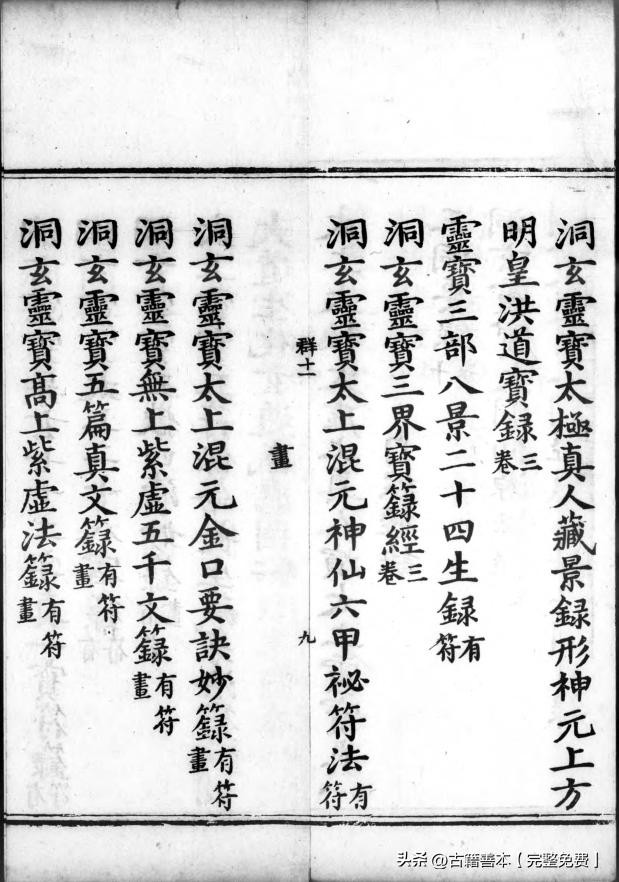 洞玄靈寶太極真人藏景録形神元上方
明皇洪道寶録三卷
靈寶三部八景二十四生録有符
洞玄靈寶三界寶籙經三卷
洞玄靈寶太上混元神仙六甲祕符法有符
群十一
畫
九
洞玄靈寶太上混元金口要訣妙籙有符畫
洞玄靈寶無上紫虛五千文籙有符畫
洞玄靈寶五篇真文籙有符畫
洞玄靈寶高上紫虛法籙有符畫
头条 @古籍善本【完整免费】